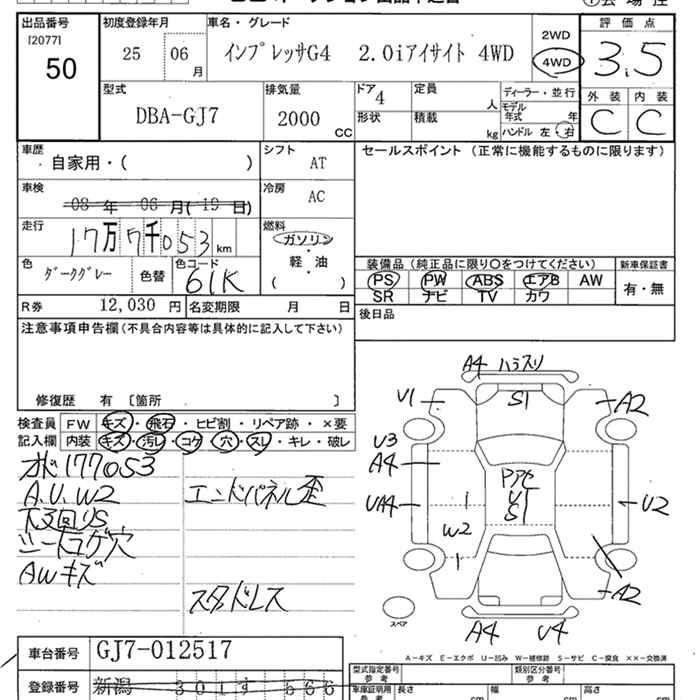 出品番号
[2077]
50
初度登録年月
25 06 月
車名・グレード
インプレッサG4 2.0iアイサイト 4WD
2WD
4WD
評価点
3.5
外装 内装
C C
型式
DBA-GJ7
排気量
2000 CC
ドア
4
形状
定員
人
積載
kg
ディーラー・並行
モデル年式 年
ハンドル 左・右
車歴
自家用・( )
シフト
AT
車検
08年 06月(19日)
冷房
AC
走行
17万7千053km
燃料
ガソリン
軽・油
( )
色
ダークグレー
色替
色コード
61K
R券 12,030 円
名変期限 月 日
セールスポイント (正常に機能するものに限ります)
装備品 (純正品に限り○をつけてください)
新車保証書
PS PW ABS エアB AW
有・無
SR ナビ TV カワ
後日品
注意事項申告欄(不具合内容等は具体的に記入して下さい)
修復歴 有 〔箇所 〕
検査員
記入欄
FW キズ・飛石・ヒビ割・リペア跡・×要
内装 キズ・汚レ・コゲ・穴・スレ・キレ・破レ
オド177053
A.U.W2
下廻US
シートコゲ穴
AWキズ
エンドパネル歪
スタッドレス
A4 ハラスリ
U1
S1
A2
U3
A4
UA4
Pアセ
U1
S1
W2
U2
A2
A4
U4
スペア
A-キズ E-エクボ U-凹み W-補修跡 S-サビ C-腐食 ××-交換済
車台番号
GJ7-012517
登録番号
新潟 301す666
型式指定番号
参考
類別区分番号
参考
車庫証明用
参考
長さ cm
幅 cm
高さ cm